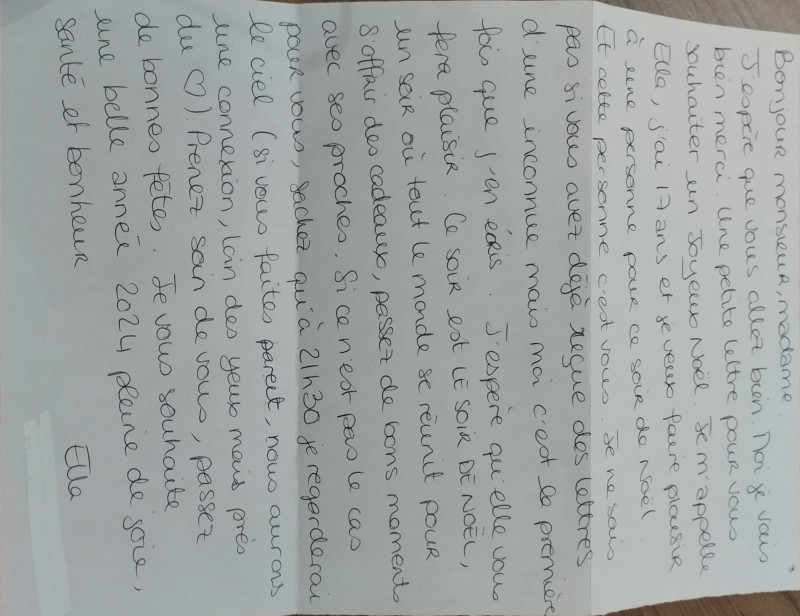 Bonjour monsieur, madame
J'espère que vous allez bien. Moi je vais
bien merci. Une petite lettre pour vous
souhaiter un Joyeux Noël. Je m'appelle
Ella, j'ai 17 ans et je veux faire plaisir
à une personne pour ce soir de Noël.
Et cette personne c'est vous. Je ne sais
pas si vous avez déjà reçue des lettres
d'une inconnue mais moi c'est la première
fois que j'en écris. J'espère qu'elle vous
fera plaisir. Ce soir est LE SOIR DE NOËL,
un soir où tout le monde se réunit pour
s'offrir des cadeaux, passer de bons moments
avec ses proches. Si ce n'est pas le cas
pour vous, sachez qu'à 21h30 je regarderai
le ciel (si vous faites pareil, nous aurons
une connexion, loin des yeux mais près
du ♡). Prenez soin de vous, passez
de bonnes fêtes. Je vous souhaite
une belle année 2024 pleine de joie,
santé et bonheur
Ella